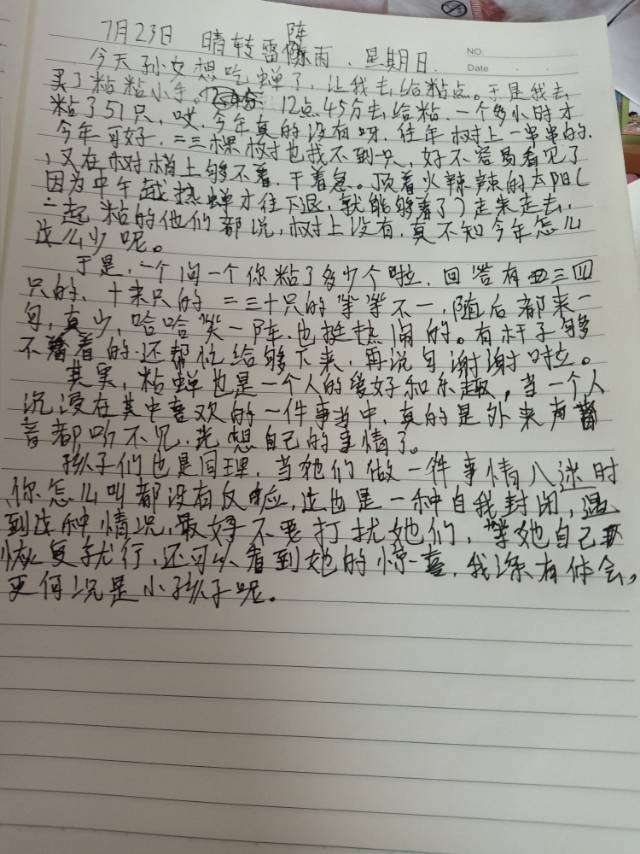 NO.
Date
7月23日 晴转雷阵雨. 星期日
今天孙女想吃蝉了,让我去给粘点。于是我去
买了粘粘小手。12点45分去给粘.一个多小时才
粘了51只,哎.今年真的没有呀.往年树上一串串的.
今年可好.二三棵树也找不到一只,好不容易看见了
,又在树梢上够不着.干着急。顶着火辣辣的太阳(
因为中午越热蝉才往下退,就能够着了)走来走去,
一起粘的他们都说,树上没有,真不知今年怎么
这么少呢。
于是,一个问一个你粘了多少个啦.回答有三四
只的、十来只的 二三十只的等等不一,随后都来一
句,真少,哈哈笑一阵.也挺热闹的。有杆子够
不着的.还帮忙给够下来,再说句谢谢啦。
其实,粘蝉也是一个人的爱好和乐趣,当一个人
沉浸在其中喜欢的一件事当中,真的是外来声
音都听不见,光想自己的事情了。
孩子们也是同理,当她们做一件事情入迷时
你怎么叫都没有反应,这也是一种自我封闭,遇
到这种情况,最好不要打扰她们,等她自己
恢复就行,还可以看到她的惊喜,我深有体会,
更何况是小孩子呢。